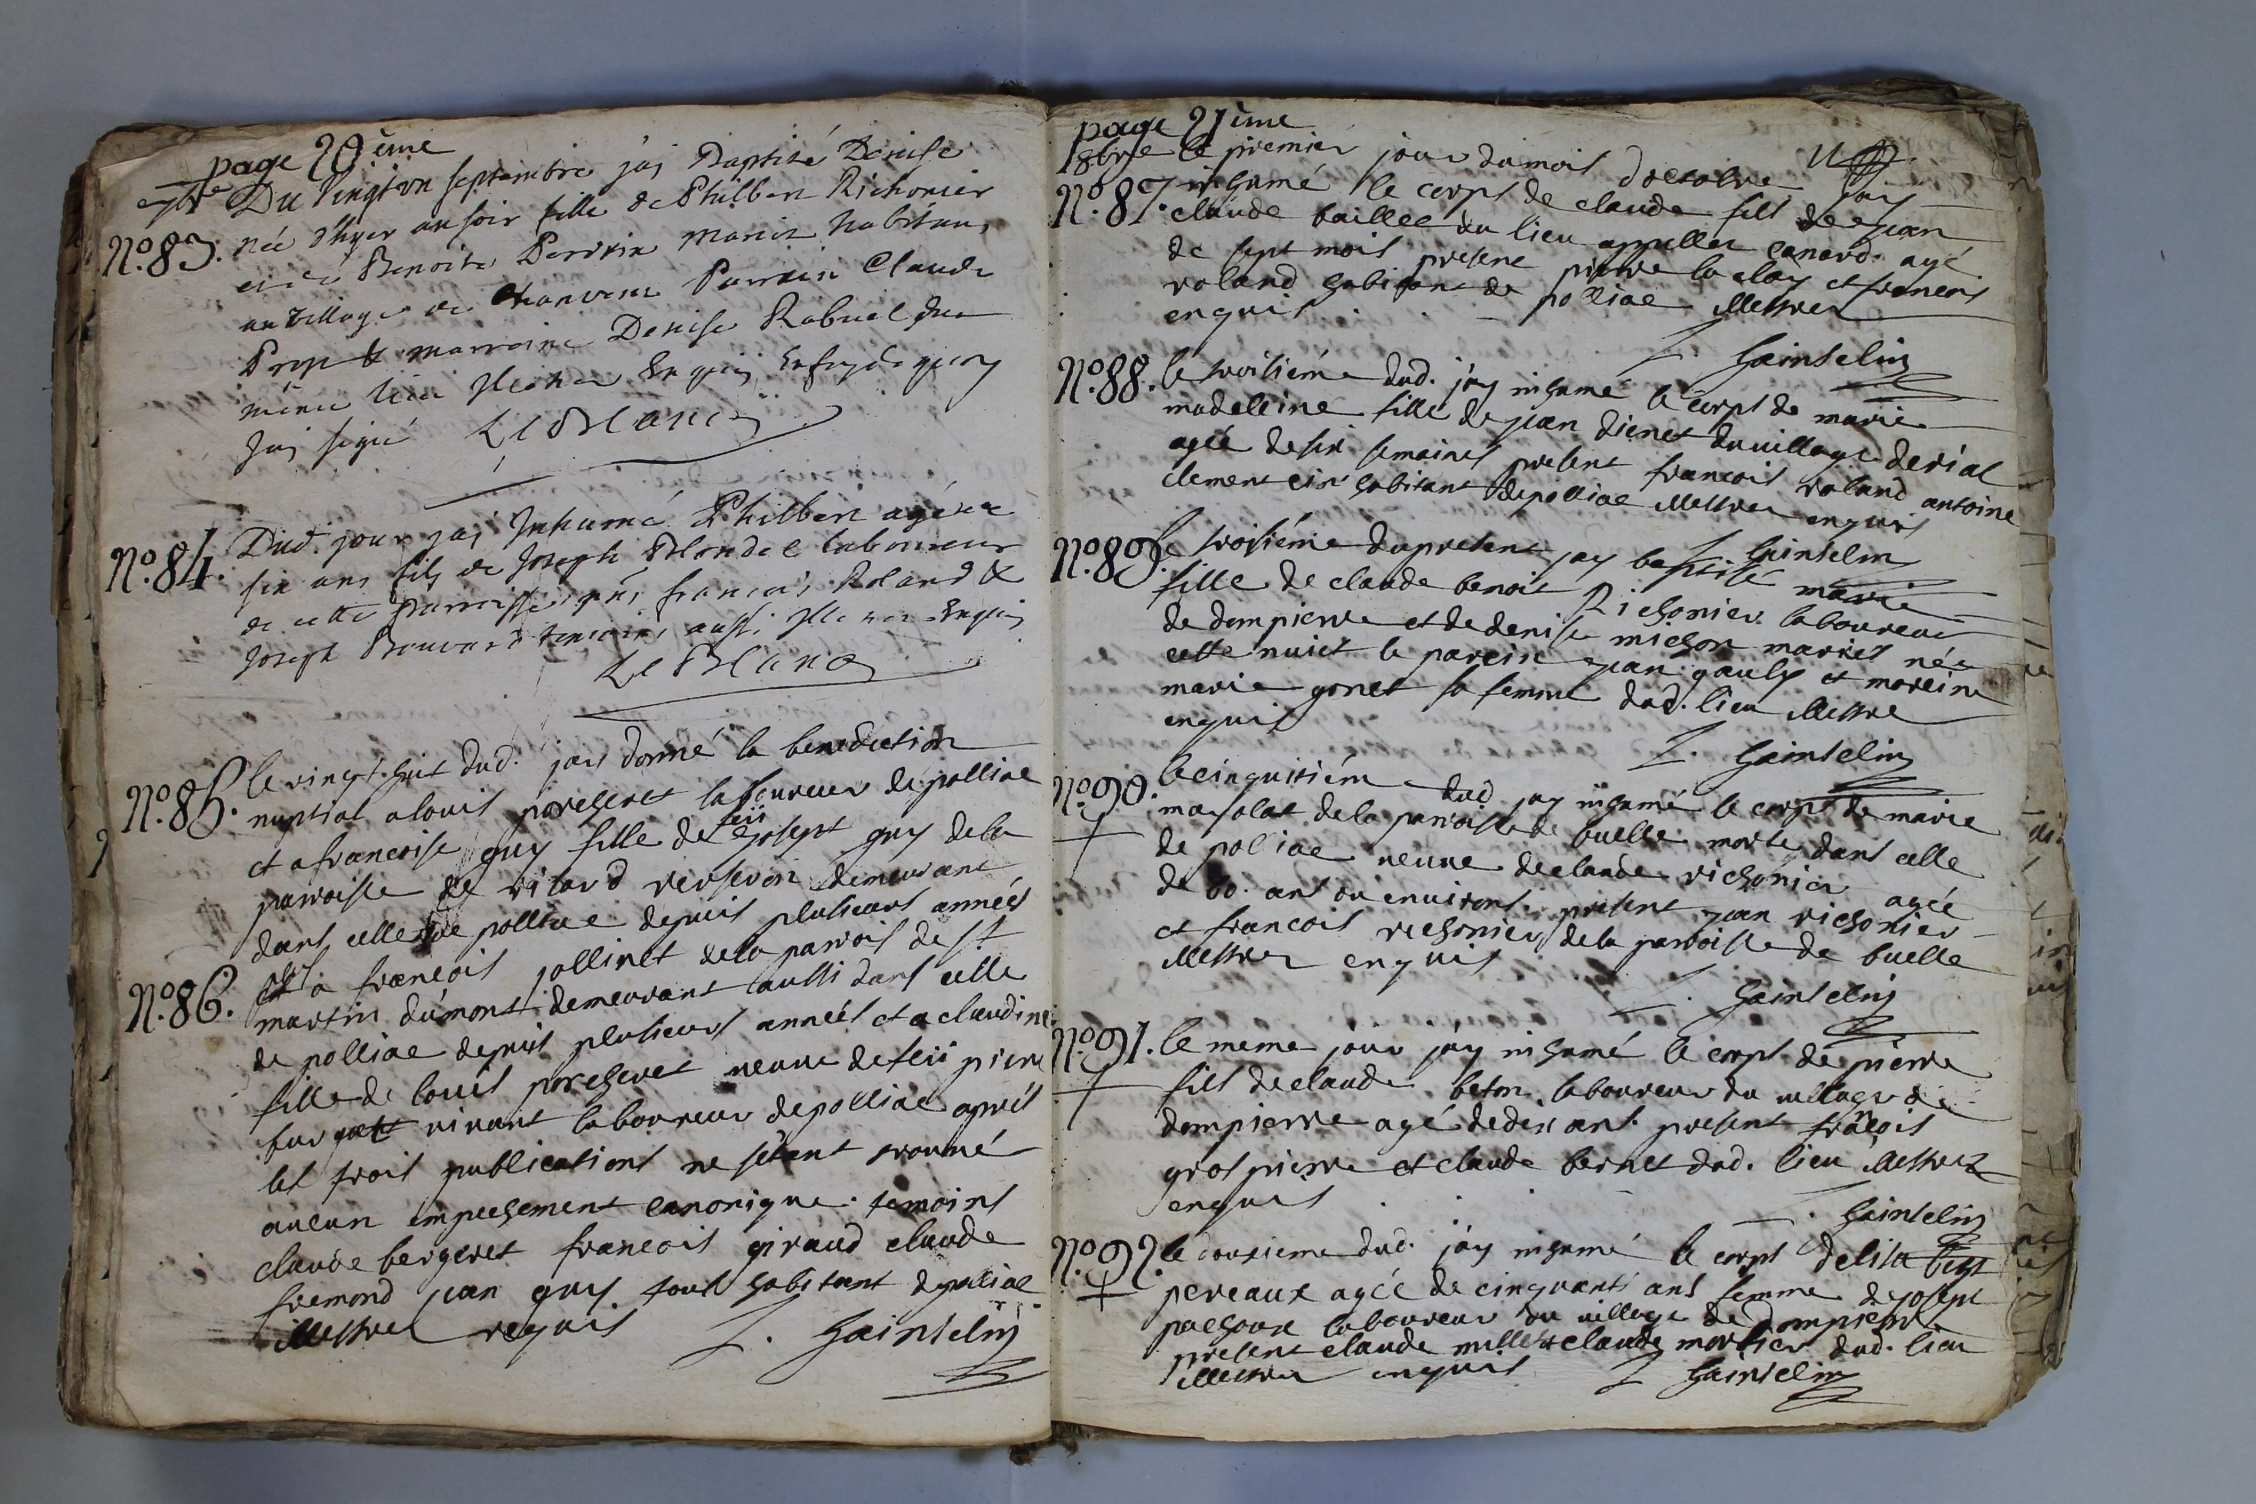 page 20ème
7bre Du Vingtun septembre jaÿ Baptisé Denise
N.° 83. née d'hyer au soir fille de Philbert Richonier
et de Benoite Perdrix mariez habitans
au village de Chanvent Parrain Claude
Prop & marraine Denise Rabuel du
même lieu Illetrez Enquis
Jaÿ signé LeBlanc
N.° 84. Dud. jour jaÿ Inhumé Philbert agé de
six ans fils de Joseph Blondel laboureur
de cette Parroisse françois Roland &
Joseph Bouvard temoins aussi Illetrez Enquis
LeBlanc
N.° 85. le vingt huit dud. jaÿ donné la benediction
nuptial a louis porcheret laboureur de polliac
et a francoise guy fille de feü joseph guy de la
paroisse de vilard verseron demeurant
dans celle de polliac depuis plusieurs années
N.° 86. plus a francois jollinet de la parois de st
martin dumont demeurant aussi dans celle
de polliac depuis plusieurs années et a claudine
fille de louis porcheret veuve de feü pierre
furget vivant laboureur de polliac aprés
les trois publications ne sétant trouvé
aucun empechement canonique temoins
claude bergeret francois giraud claude
fremond jean guy tous habitant de polliac
illettrez requis L. Gainselin
page 21ème
8bre le premier jour du mois d'octobre jaÿ
N.° 87. inhumé le corps de claude fils de jean
claude baillee du lieu appellez canard agé
de sept mois present pierre la claÿ et francois
roland habitant de polliac illettrez
enquis
L. Gainselin
N.° 88. le troisiéme dud. jaÿ inhumé le corps de marie
madeleine fille de jean dienet du village de rial
agée de six semaines present francois roland antoine
clement habitant de polliac illettrez enquis
L. Gainselin
N.° 89. le troisiéme du present jaÿ baptisé marie
fille de claude benoit Richonier laboureur
de dompierre et de denise michon mariés née
cette nuict le parein jean gauly et mareine
marie gonet sa femme dud. lieu illettre
enquis
L. Gainselin
N.° 90. le cinquiéme dud jaÿ inhumé le corps de marie
mayolat de la paroisse de buelle morte dans celle
de poliac veuve de claude richonier agée
de 60. ans ou environs present jean richonier
et francois richonier de la paroisse de buelle
illettrez enquis
L. Gainselin
N.° 91. le meme jour jáy inhumé le corps de pierre
fils de claude beton laboureur du village de
dompierre agé de dix ans. present francois
gros pierre et claude bernet dud. lieu illettrez
enquis
L. Gainselin
N.° 92. le douxieme dud. jáy inhumé le corps delisa
pereaux agée de cinquante ans femme de joseph
pachoux laboureur du village de dompierre
present claude millet et claude mortier dud. lieu
illettrez enquis L Gainselin